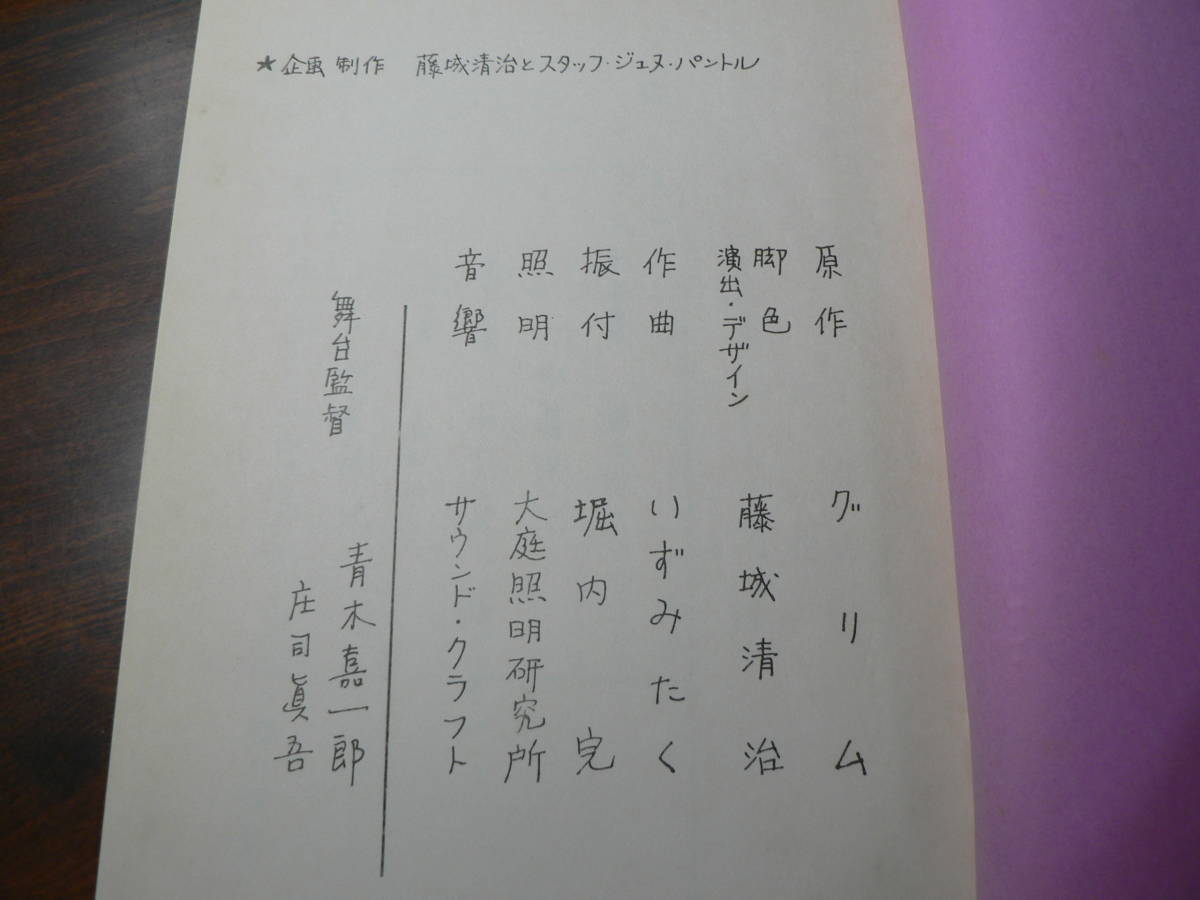 ★企画 制作 藤城清治とスタッフ・ジュヌ・パントル
原作 グリム
脚色
演出・デザイン 藤城清治
作曲 いずみたく
振付 堀内完
照明 大庭照明研究所
音響 サウンド・クラフト
舞台監督 青木嘉一郎
庄司眞吾